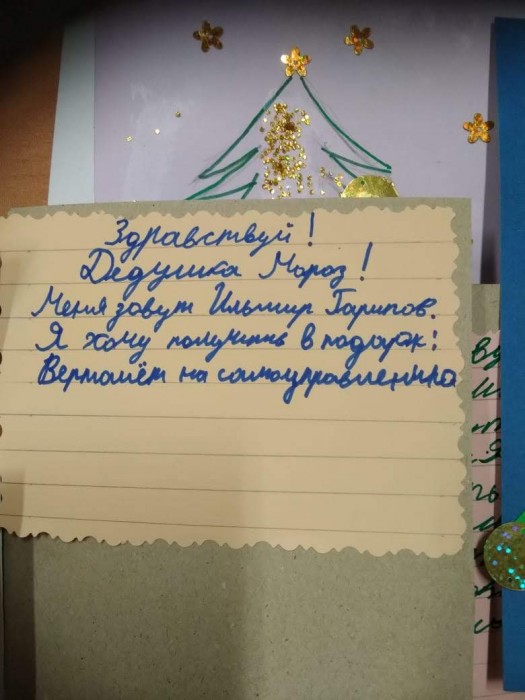 Здравствуй!
Дедушка Мороз!
Меня зовут Ильмир Гарипов.
Я хочу получить в подарок:
Вертолёт на самоуправлении